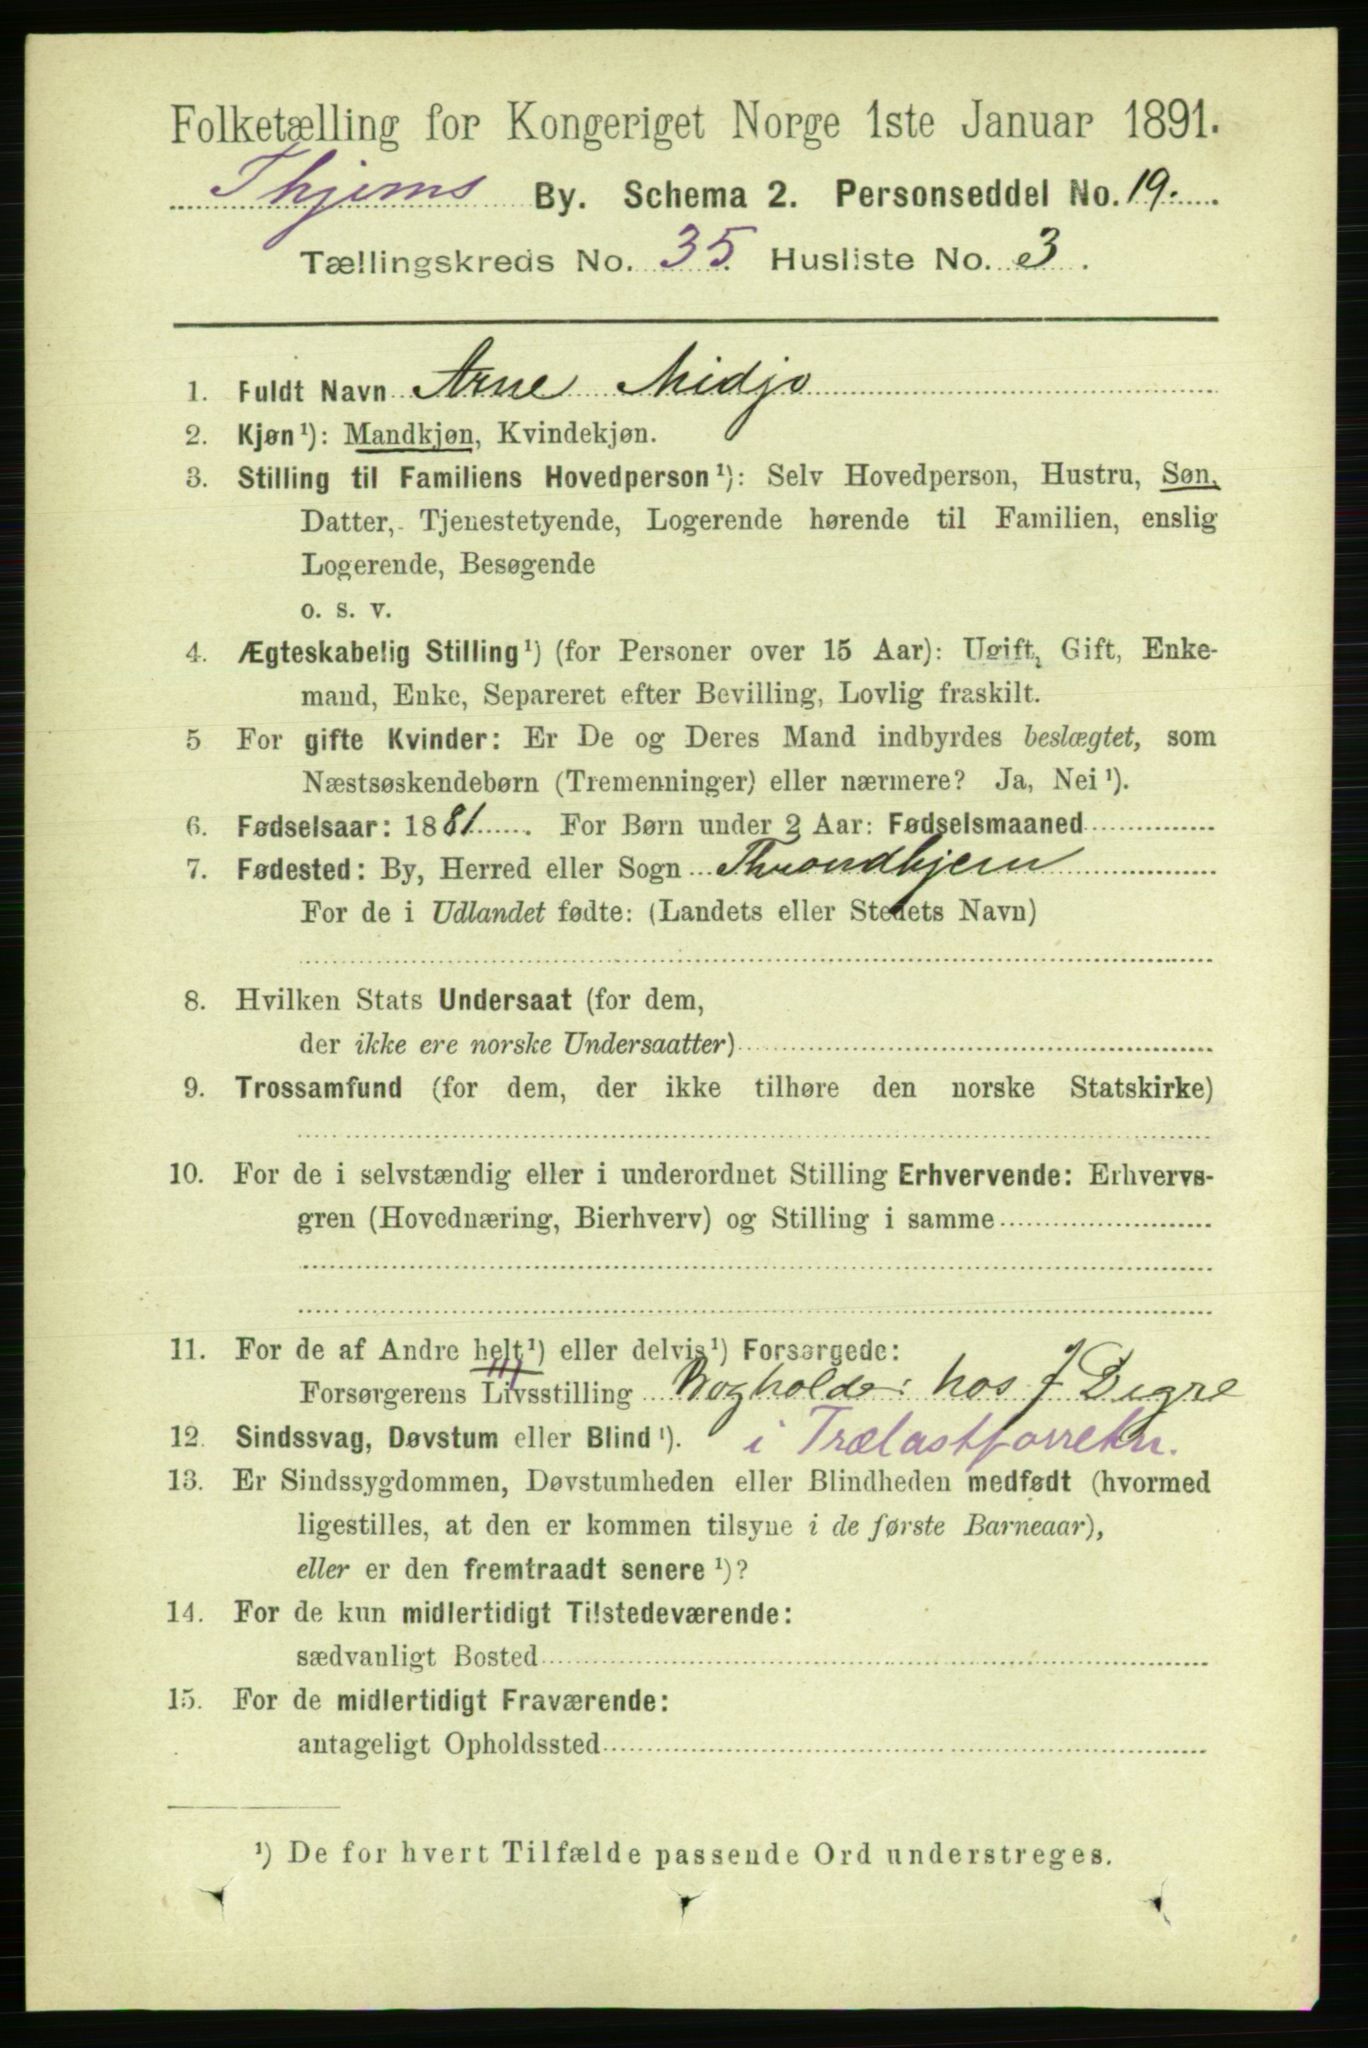 Folketælling for Kongeriget Norge 1ste Januar 1891.
Thjems By. Schema 2. Personseddel No. 19.
Tællingskreds No. 35. Husliste No. 3.
1. Fuldt Navn Arne Midjo
2. Kjøn¹): Mandkjøn, Kvindekjøn.
3. Stilling til Familiens Hovedperson¹): Selv Hovedperson, Hustru, Søn,
Datter, Tjenestetyende, Logerende hørende til Familien, enslig
Logerende, Besøgende
o. s. v.
4. Ægteskabelig Stilling¹) (for Personer over 15 Aar): Ugift, Gift, Enke-
mand, Enke, Separeret efter Bevilling, Lovlig fraskilt.
5 For gifte Kvinder: Er De og Deres Mand indbyrdes beslægtet, som
Næstsøskendebørn (Tremenninger) eller nærmere? Ja, Nei¹).
6. Fødselsaar: 1881. For Børn under 2 Aar: Fødselsmaaned
7. Fødested: By, Herred eller Sogn Throndhjem
For de i Udlandet fødte: (Landets eller Stedets Navn)
8. Hvilken Stats Undersaat (for dem,
der ikke ere norske Undersaatter)
9. Trossamfund (for dem, der ikke tilhøre den norske Statskirke)
10. For de i selvstændig eller i underordnet Stilling Erhvervende: Erhvervs-
gren (Hovednæring, Bierhverv) og Stilling i samme
11. For de af Andre helt¹) eller delvis¹) Forsørgede:
Forsørgerens Livsstilling Bogholder hos J Digre
12. Sindssvag, Døvstum eller Blind¹). i Trælastforretn.
13. Er Sindssygdommen, Døvstumheden eller Blindheden medfødt (hvormed
ligestilles, at den er kommen tilsyne i de første Barneaar),
eller er den fremtraadt senere¹)?
14. For de kun midlertidigt Tilstedeværende:
sædvanligt Bosted
15. For de midlertidigt Fraværende:
antageligt Opholdssted
¹) De for hvert Tilfælde passende Ord understreges.